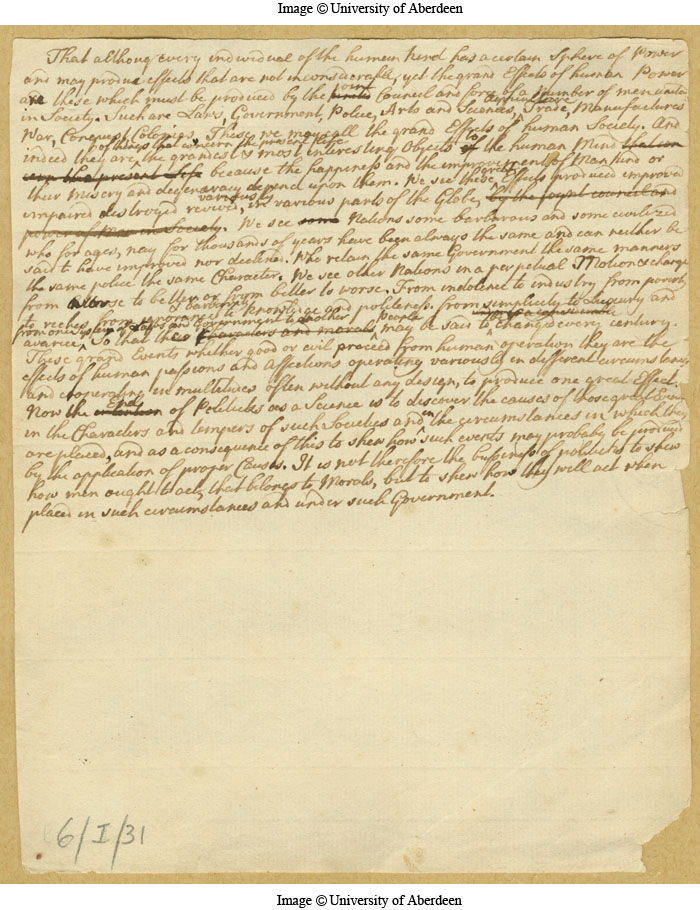 Image © University of Aberdeen
That althoug every individual of the human kind has a certain Sphere of Power
and may produce effects that are not inconsiderable, yet the grand Effects of human Power
are these which must be produced by the joint Council and force of a number of men united
in Society. Such are Laws, Government, Police, Arts and Sciences, Agriculture Trade, Manufactures
War, Conquest Colonies. These we may call the grand Effects of human Society. And
of things that concern the present state
indeed they are the grandest & most interesting Objects to the human Mind that con
cern the present Life because the happiness and the improvement of Mankind or
their Misery and degeneracy depend upon them. We see these Effects produced improved
impaired destroyed revived, variously in various parts of the Globe, by the joynt council and
power of Men in Society. We see some Nations some barbarous and some civilized
who for ages, nay for thousands of years have been always the same and can neither be
said t have improved nor declined. Who retain the same Government the same manners
the same police the same Character. We see other Nations in a perpetual Motion & change
from worse to better or from better to worse. From indolence to industry from poverty
to riches from ignorance & barbarity to knowledge and politeness. from simplicity to Luxury and
from one system of Laws and Government to another
avarice, So that the people Characters and morals may be said to change every century.
These grand Events whether good or evil proceed from human operation they are the
effects of human passions and Affections operating variously in different circumstances
and cooperating in multitudes often without any design, to produce one great Effect.
Now the End of Politicks as a Science is to discover the causes of those great Events
in the Characters and tempers of such Societies and in the circumstances in which they
are placed, and as a consequence of this to shew how such events may probably be produced
by the application of proper Causes. It is not therefore the business of politicks to shew
how men ought to act, that belongs to Morals, but to shew how they will act when
placed in such circumstances and under such Government.
6/I/31
Image © University of Aberdeen